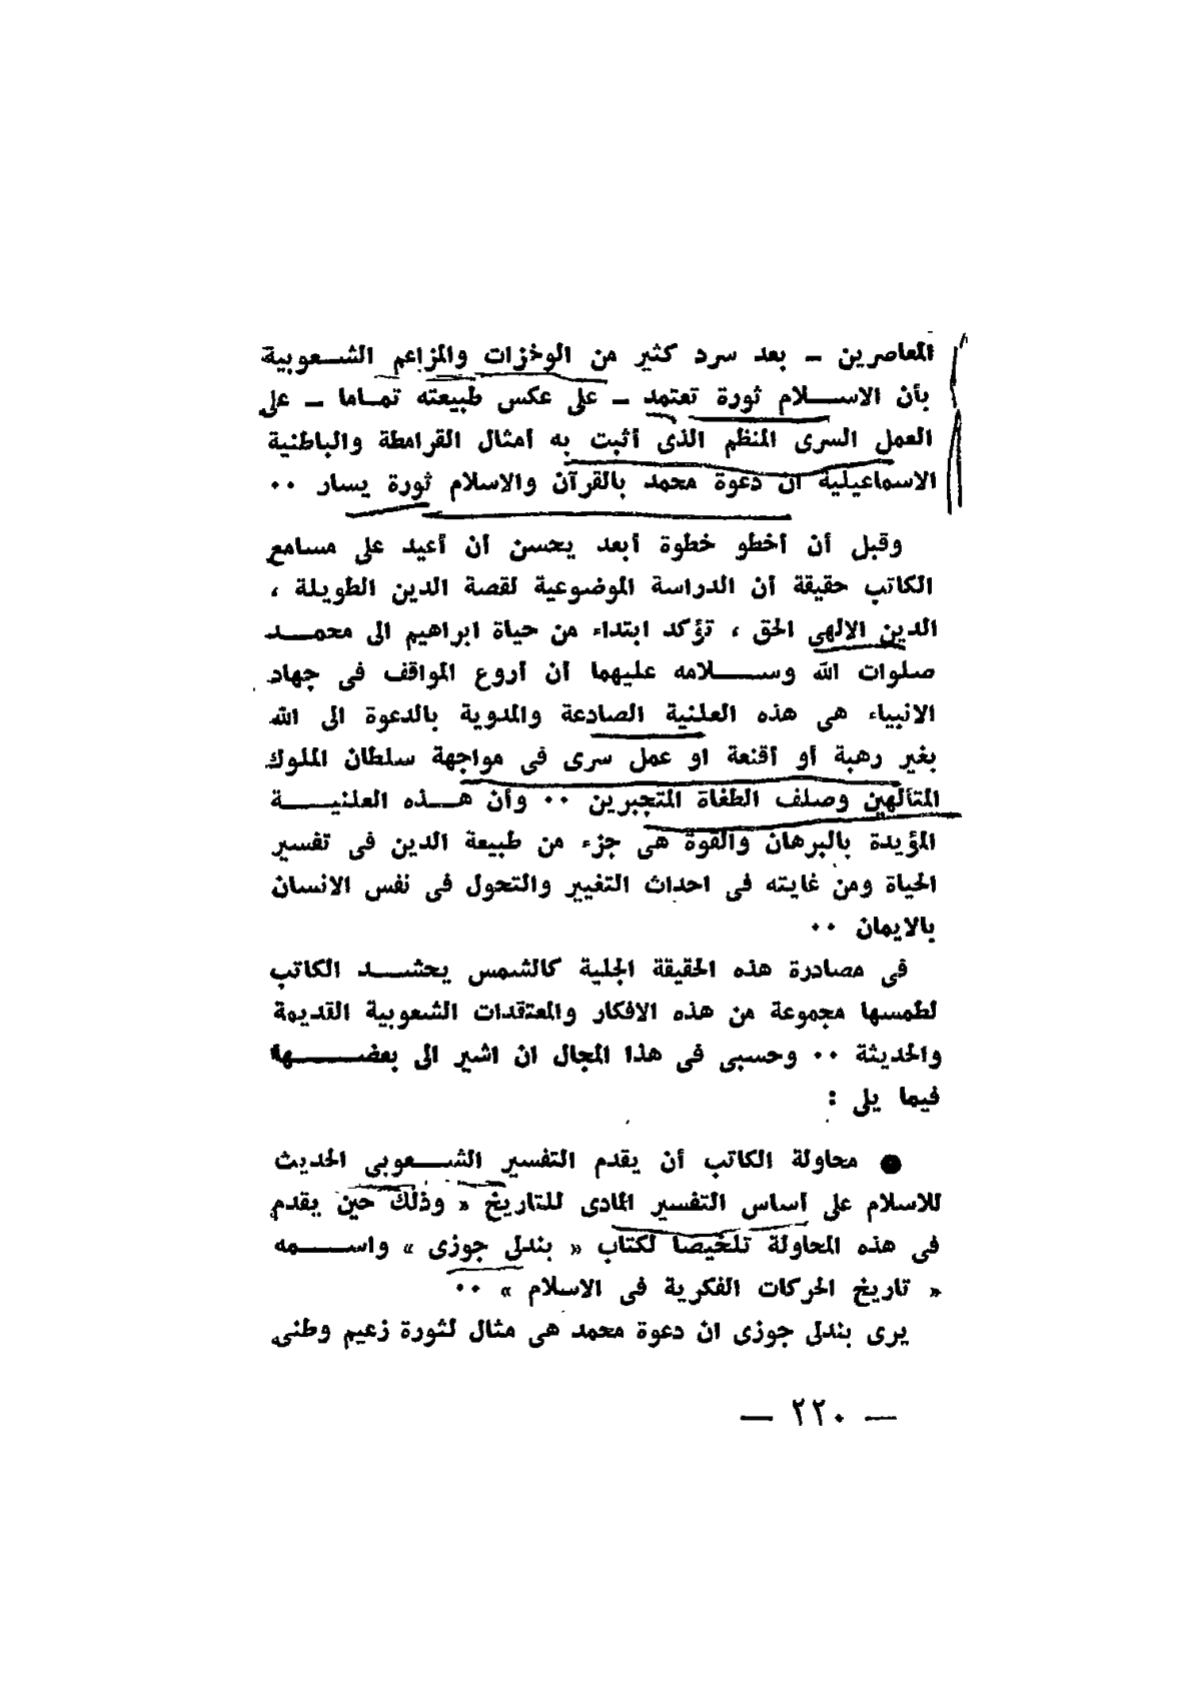 المعاصرين – بعد سرد كثير من الوخزات والمزاعم الشـعوبية
بأن الاسـلام ثورة تعتمد – على عكس طبيعته تمـاما – على
العمل السرى المنظم الذى أثبت به أمثال القرامطة والباطنية
الاسماعيلية ان دعوة محمد بالقرآن والاسلام ثورة يسار ٠٠
وقبل أن أخطو خطوة أبعد يحسن أن أعيد على مسامع
الكاتب حقيقة أن الدراسة الموضوعية لقصة الدين الطويلة ،
الدين الالهى الحق ، تؤكد ابتداء من حياة ابراهيم الى محمـد
صلوات الله وسـلامه عليهما أن أروع المواقف فى جهاد
الانبياء هى هذه العلنية الصادعة والمدوية بالدعوة الى الله
بغير رهبة أو أقنعة او عمل سرى فى مواجهة سلطان الملوك
المتألهين وصلف الطغاة المتجبرين ٠٠ وأن هـذه العلنيـة
المؤيدة بالبرهان والقوة هى جزء من طبيعة الدين فى تفسير
الحياة ومن غايته فى احداث التغيير والتحول فى نفس الانسان
بالايمان ٠٠
فى مصادرة هذه الحقيقة الجلية كالشمس يحشـد الكاتب
لطمسها مجموعة من هذه الافكار والمعتقدات الشعوبية القديمة
والحديثة ٠٠ وحسبى فى هذا المجال ان اشير الى بعضـها
فيما يلى :
● محاولة الكاتب أن يقدم التفسير الشـعوبى الحديث
للاسلام على أساس التفسير المادى للتاريخ « وذلك حين يقدم
فى هذه المحاولة تلخيصا لكتاب « بندلى جوزى » واسـمه
« تاريخ الحركات الفكرية فى الاسلام » ٠٠
يرى بندلى جوزى ان دعوة محمد هى مثال لثورة زعيم وطنى
— ٢٢٠ —